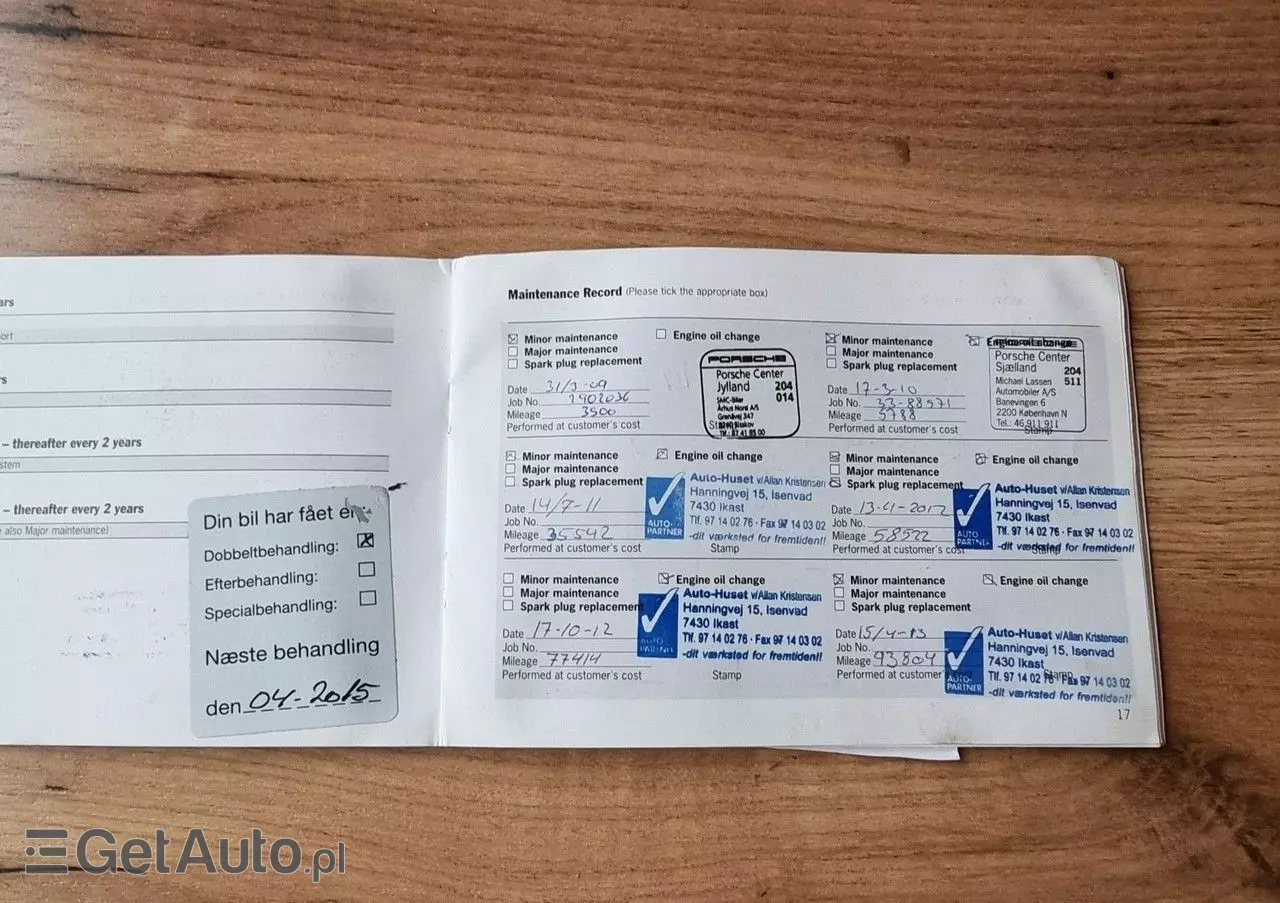 ars
ort
s
– thereafter every 2 years
stem
– thereafter every 2 years
also Major maintenance)
Din bil har fået
Dobbeltbehandling:
Efterbehandling:
Specialbehandling:
Næste behandling
den 04-2015
Maintenance Record (Please tick the appropriate box)
Minor maintenance
Engine oil change
Major maintenance
Spark plug replacement
Date
Job No.
Mileage 3500
Performed at customer's cost
PORSCHE
Porsche Center
Jylland 204
014
SMC-Biler
Århus Nord A/S
Grenåvej 347
Minor maintenance
Major maintenance
Spark plug replacement
Date 17-3-10
Job No. 33-88571
Mileage 5788
Performed at customer's cost
Porsche Center
Sjælland 204
Michael Lassen 511
Automobiler A/S
Banevingen 6
2200 København N
Tel.: 46 911 911
Stamp
Minor maintenance
Engine oil change
Major maintenance
Spark plug replacement
Date 14/7-11
Job No.
Mileage 35542
Performed at customer's cost
Stamp
AUTO-
PARTNER
Auto-Huset v/Allan Kristensen
Hanningvej 15, Isenvad
7430 Ikast
Tlf. 97 14 02 76 · Fax 97 14 03 02
-dit værksted for fremtiden!!
Minor maintenance
Engine oil change
Major maintenance
Spark plug replacement
Date 13-4-2012
Job No.
Mileage 58522
Performed at customer's cost
AUTO
PARTNER
Auto-Huset v/Allan Kristensen
Hanningvej 15, Isenvad
7430 Ikast
Tlf. 97 14 02 76 · Fax 97 14 03 02
-dit værksted for fremtiden!!
Minor maintenance
Engine oil change
Major maintenance
Spark plug replacement
Date 17-10-12
Job No.
Mileage 77414
Performed at customer's cost
Stamp
Auto-Huset v/Allan Kristensen
Hanningvej 15, Isenvad
7430 Ikast
Tlf. 97 14 02 76 · Fax 97 14 03 02
-dit værksted for fremtiden!!
Minor maintenance
Engine oil change
Major maintenance
Spark plug replacement
Date 15/4-13
Job No.
Mileage 93804
Performed at customer
AUTO-
PARTNER
Auto-Huset v/Allan Kristensen
Hanningvej 15, Isenvad
7430 Ikast
Tlf. 97 14 02 76 · Fax 97 14 03 02
-dit værksted for fremtiden!!
17
GetAuto.pl